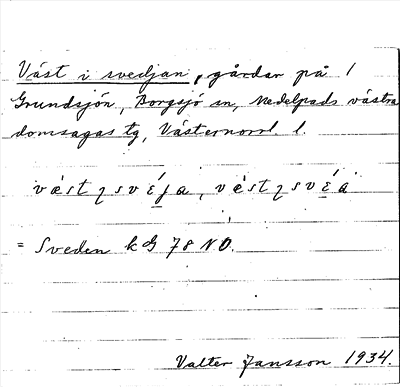 Väst i svedjan, gårdar på 1
Grundsjön, Borgsjö sn, Medelpads västra
domsagas tg, Västernorrl. l.
= Sveden kG 78 NO.
Valter Jansson 1934.